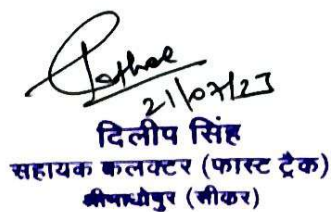 21/07/23
दिलीप सिंह
सहायक कलक्टर (फास्ट ट्रैक)
श्रीमाधोपुर (सीकर)